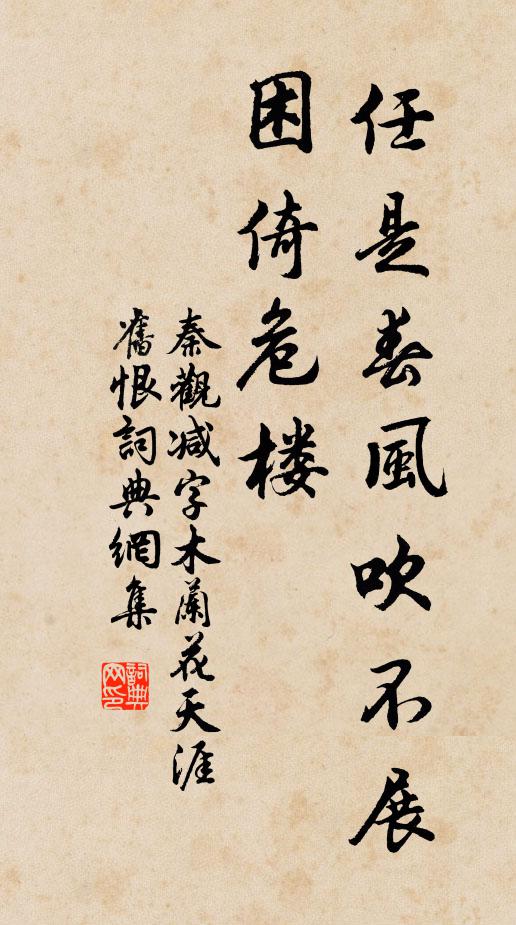 任是春風吹不展
困倚危楼
秦觀减字木蘭花天涯
舊恨詞典網集
詞典网印